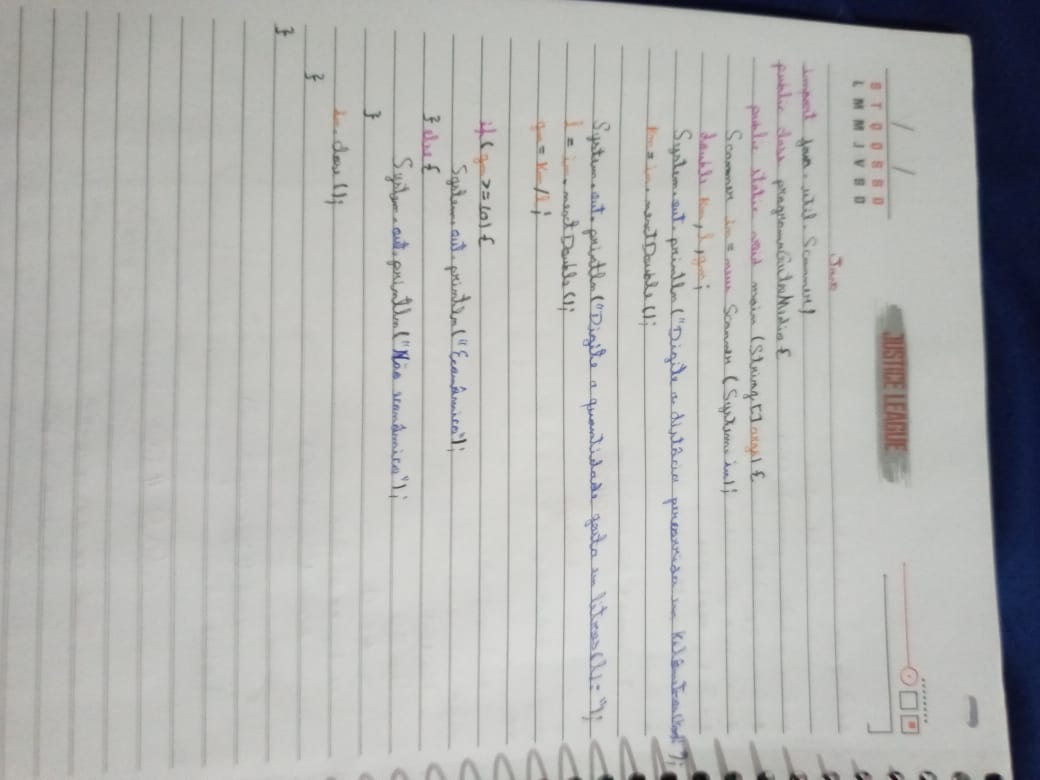 JUSTICE LEAGUE
S T Q Q S S D
L M M J V S D
Java
import java.util.Scanner;
public class programaGastoMedio {
public static void main (String [] args) {
Scanner in = new Scanner (System.in);
double Km, l, gm;
System.out.println("Digite a distância percorrida em Kilômetros(Km)");
Km = in.nextDouble();
System.out.println("Digite a quantidade gasta em litros(l) = ");
l = in.nextDouble();
gm = Km/l;
if( gm >= 10) {
System.out.println("Econômico");
} else {
System.out.println("Não econômico");
}
in.close();
}
}